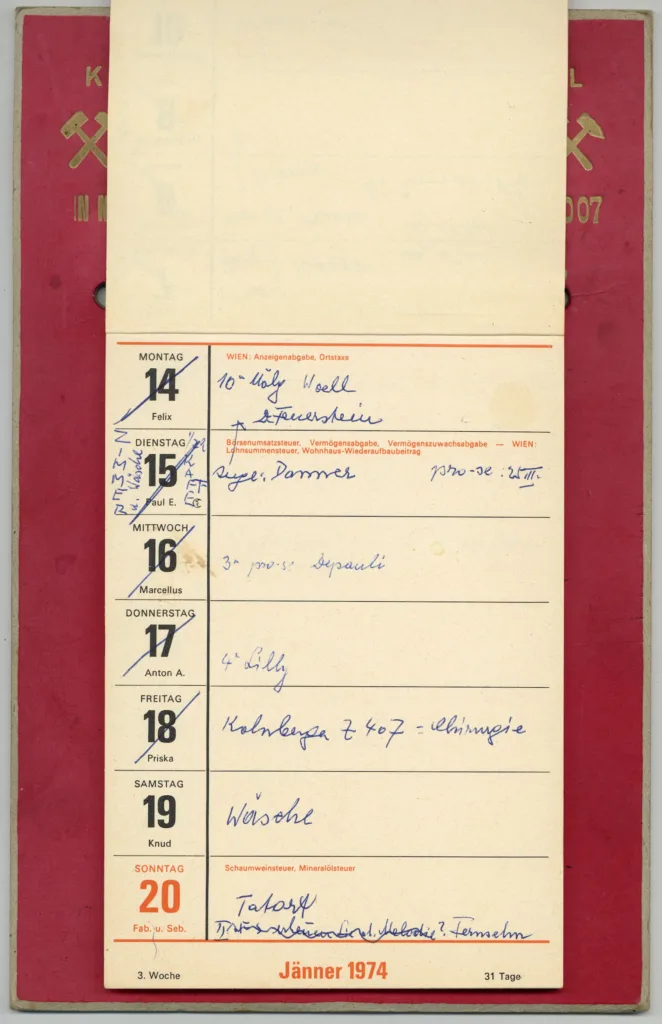 K L
IN 007
MONTAG
14
Felix
WIEN: Anzeigenabgabe, Ortstaxe
10
Feuerstein
DIENSTAG
15
Paul E.
u. Wäsche
Börsenumsatzsteuer, Vermögensabgabe, Vermögenszuwachsabgabe — WIEN:
Lohnsummensteuer, Wohnhaus-Wiederaufbaubeitrag
Danner pro-se: 25 III.
MITTWOCH
16
Marcellus
3 pro-se Depauli
DONNERSTAG
17
Anton A.
4 Lilly
FREITAG
18
Priska
Z 407 = Chirurgie
SAMSTAG
19
Knud
Wäsche
SONNTAG
20
Fab. u. Seb.
Schaumweinsteuer, Mineralölsteuer
Tatort
Melodie? Fernsehn
3. Woche Jänner 1974 31 Tage